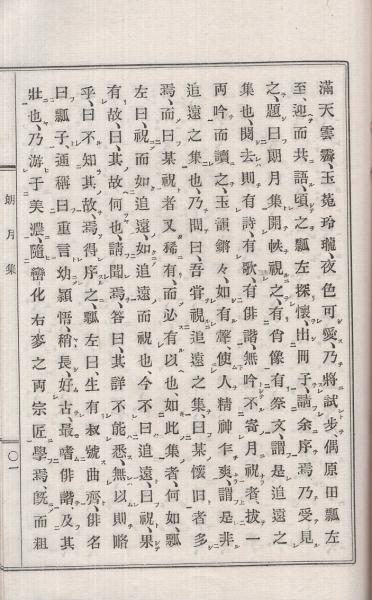 滿天雲霽、玉菟玲瓏、夜色可愛、乃將試步、偶原田瓢左
至、迎而共語、頃之瓢左探懷、出冊子、請余序焉、乃受見
之、題曰朗月集、開帙視之、有肖像有祭文、謂是追遠之
集也、閱去則有詩有歌、有俳諧、無吟不寄月視者、拔一
兩吟而讀之、玉韻鏘々、如有聲、使人精神乍爽、謂是非
追遠之集也、乃問曰、吾甞視追遠之集、曰某懷旧者多
焉、而曰某視者又稀有、而必有以也、如此集者、何如、瓢
左曰、視而如追遠、如追遠而視也、今不曰追遠、曰視、果
有故、曰、其故何也、請聞焉、答曰、其詳不能悉、無以則略
乎、曰不知其故、焉得序之、瓢左曰、生有叔號曲齊、俳名
曰瓢子、通稱曰重言、幼頴悟、稍長好古、最嗜俳諧、及其
壯也、乃游于美濃、隨巒化右麥之兩宗匠學焉、旣而粗
朗月集
〇一